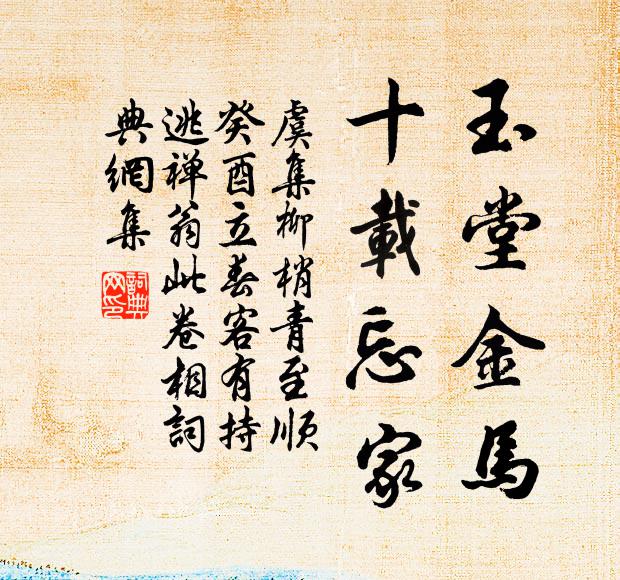 玉堂金馬
十載忘家
虞集柳梢青至順
癸酉立春客有持
逃禅翁此卷相詞
典網集
詞典
网印